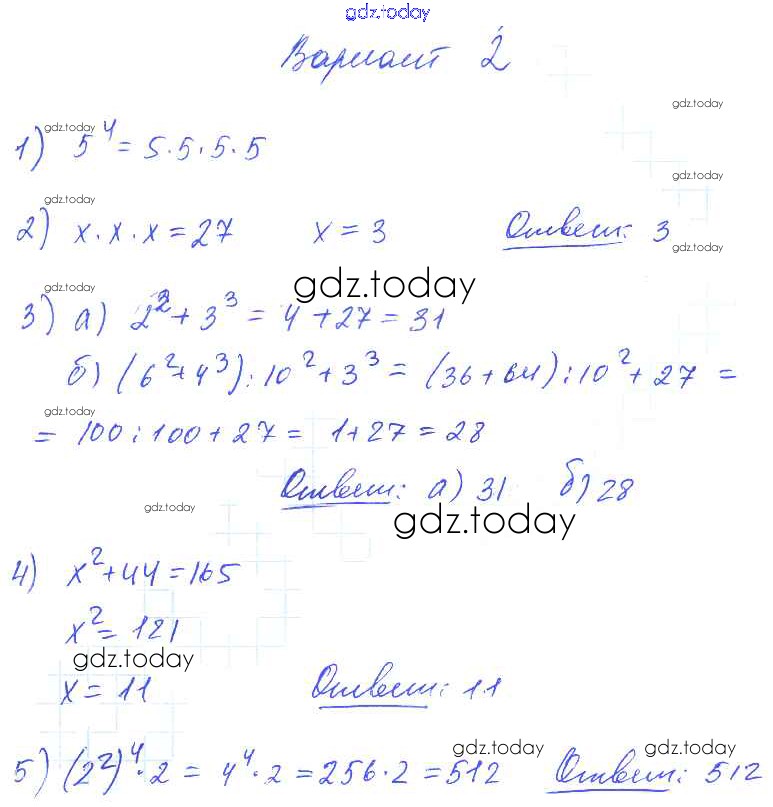 gdz.today
Вариант 2
gdz.today
gdz.today
1) 5⁴ = 5·5·5·5
gdz.today
gdz.today
2) x·x·x = 27 x = 3 Ответ: 3
gdz.today
gdz.today
gdz.today
3) а) 2² + 3³ = 4 + 27 = 31
б) (6² + 4³) : 10² + 3³ = (36 + 64) : 10² + 27 =
gdz.today
= 100 : 100 + 27 = 1 + 27 = 28
Ответ: а) 31 б) 28
gdz.today
gdz.today
4) x² + 44 = 165
x² = 121
gdz.today
x = 11 Ответ: 11
gdz.today
gdz.today
5) (2²)⁴ · 2 = 4⁴ · 2 = 256 · 2 = 512 Ответ: 512